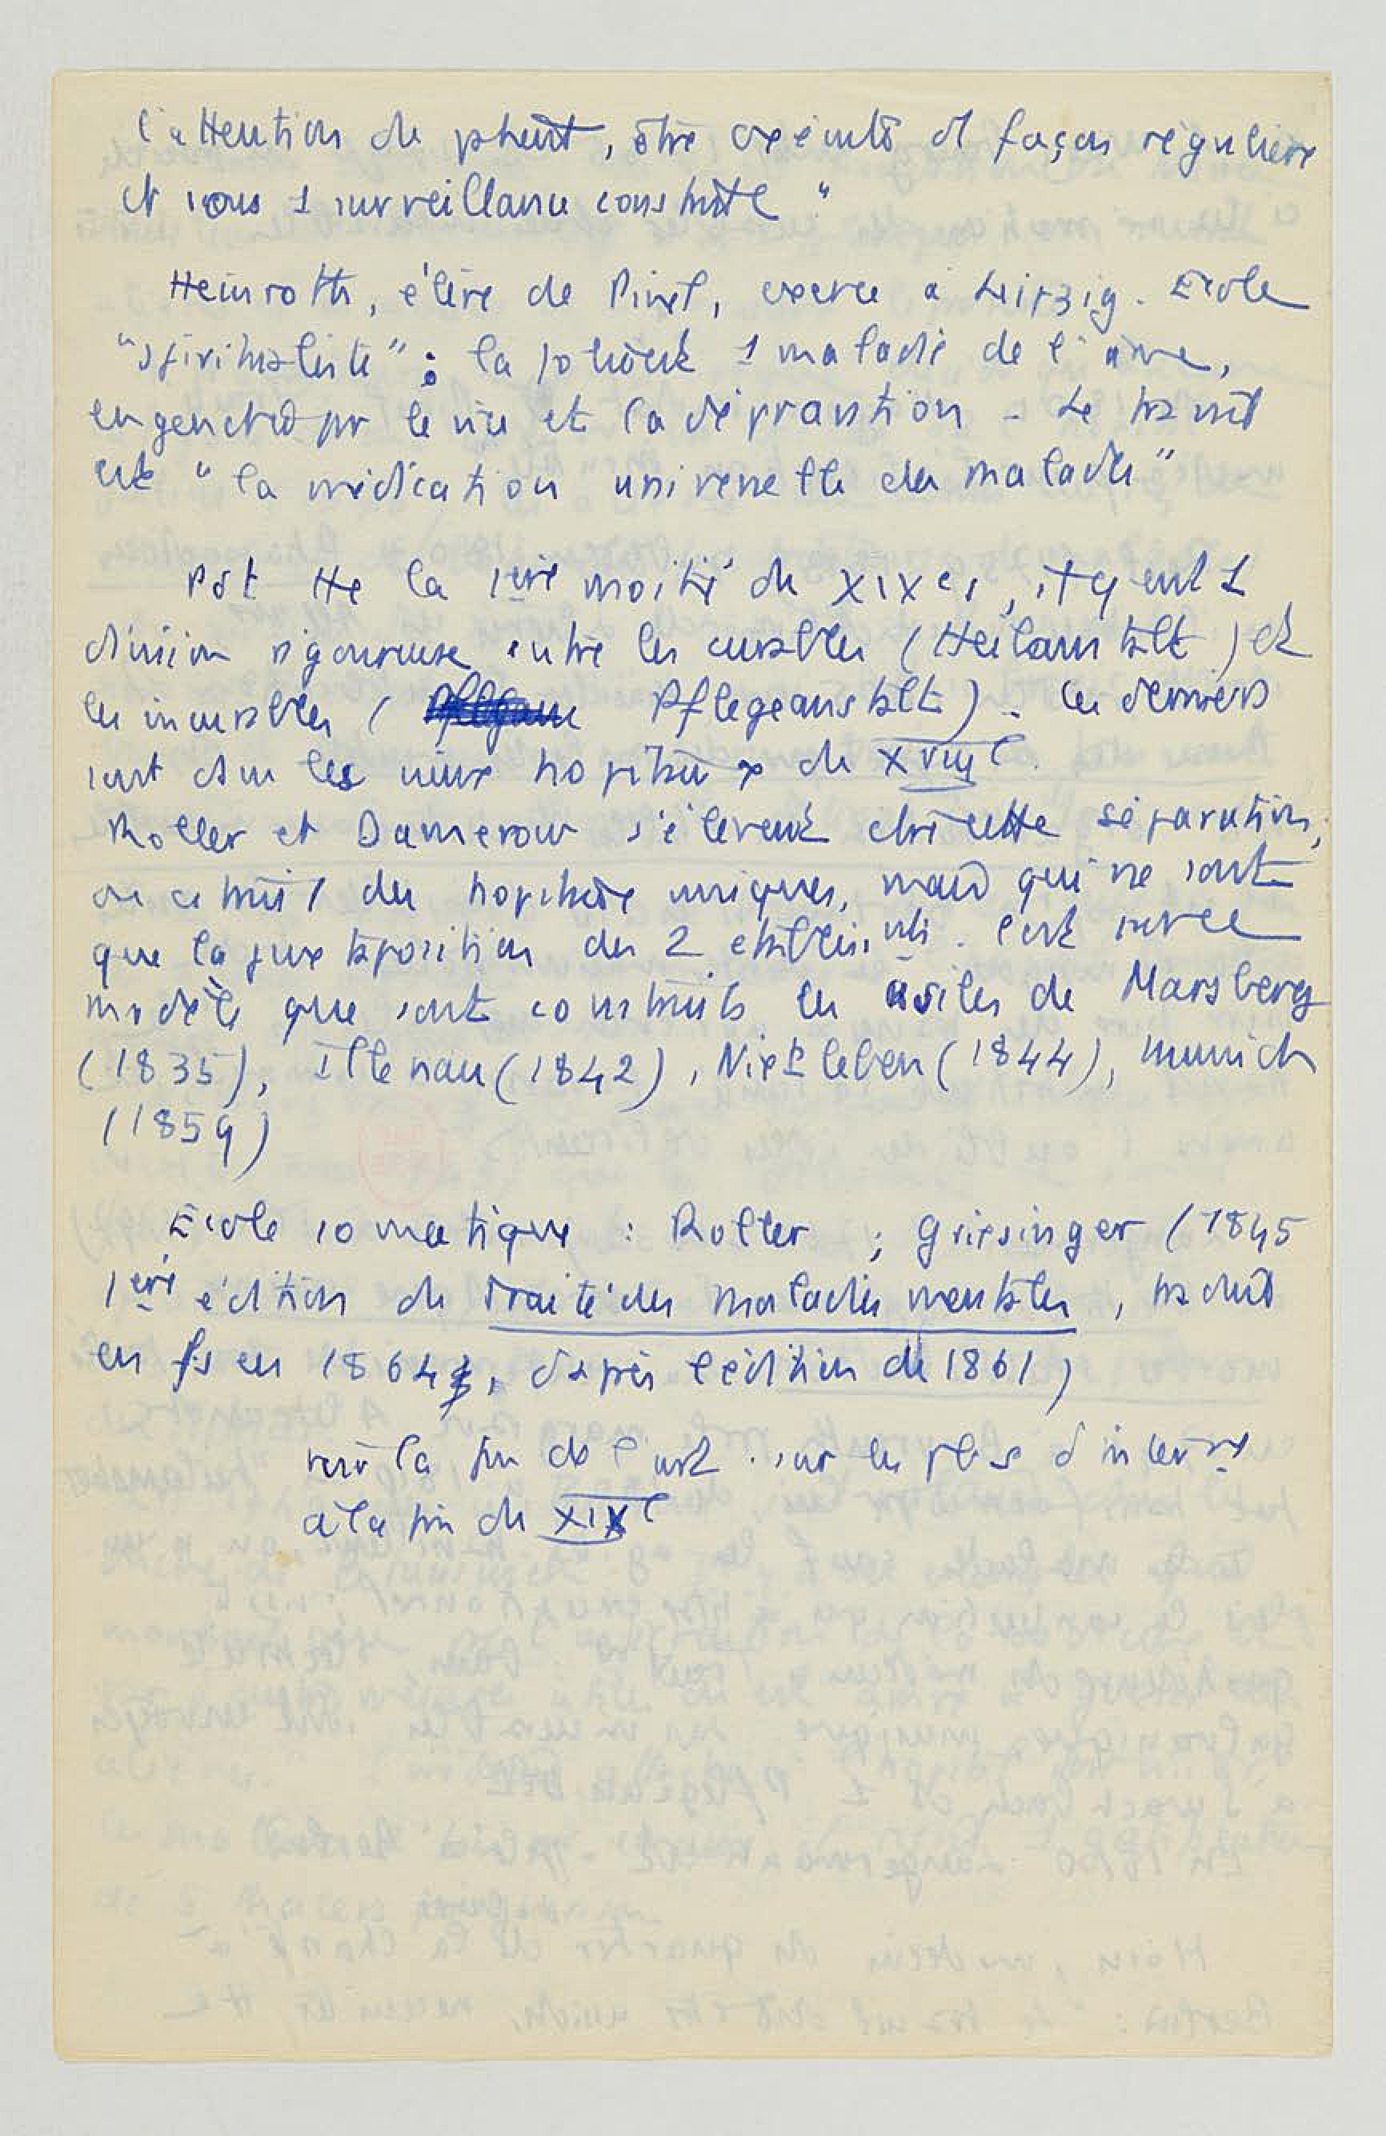 l'attention du patient, être exécuté de façon régulière
et sous 1 surveillance constante "
Heinroth, élève de Pinel, exerce à Leipzig. Ecole
"spiritualiste" : la folie est 1 maladie de l'âme,
engendrée par le vice et la dépravation - Le travail
est "la médication universelle des maladies"
Pdt tte la 1ère moitié du XIXe s, il y eut 1
division rigoureuse entre les curables (Heilanstalt) et
les incurables ( Pflegeanstalt). Ces derniers
sont dans les vieux hôpitaux du XVIIIe.
Roller et Damerow s'élèvent contre cette séparation,
on construit des hôpitaux uniques, mais qui ne sont
que la juxtaposition des 2 établis.nts. C'est sur ce
modèle que sont construits les asiles de Marsberg
(1835), Illenau (1842), Nietleben (1844), Munich
(1859)
Ecole somatique : Roller ; Griesinger (1845
1ère édition du Traité des maladies mentales, traduit
en fs en 1864, d'après l'édition de 1861)
voir la fin de l'art. sur les plus d'interne
à la fin du XIXe